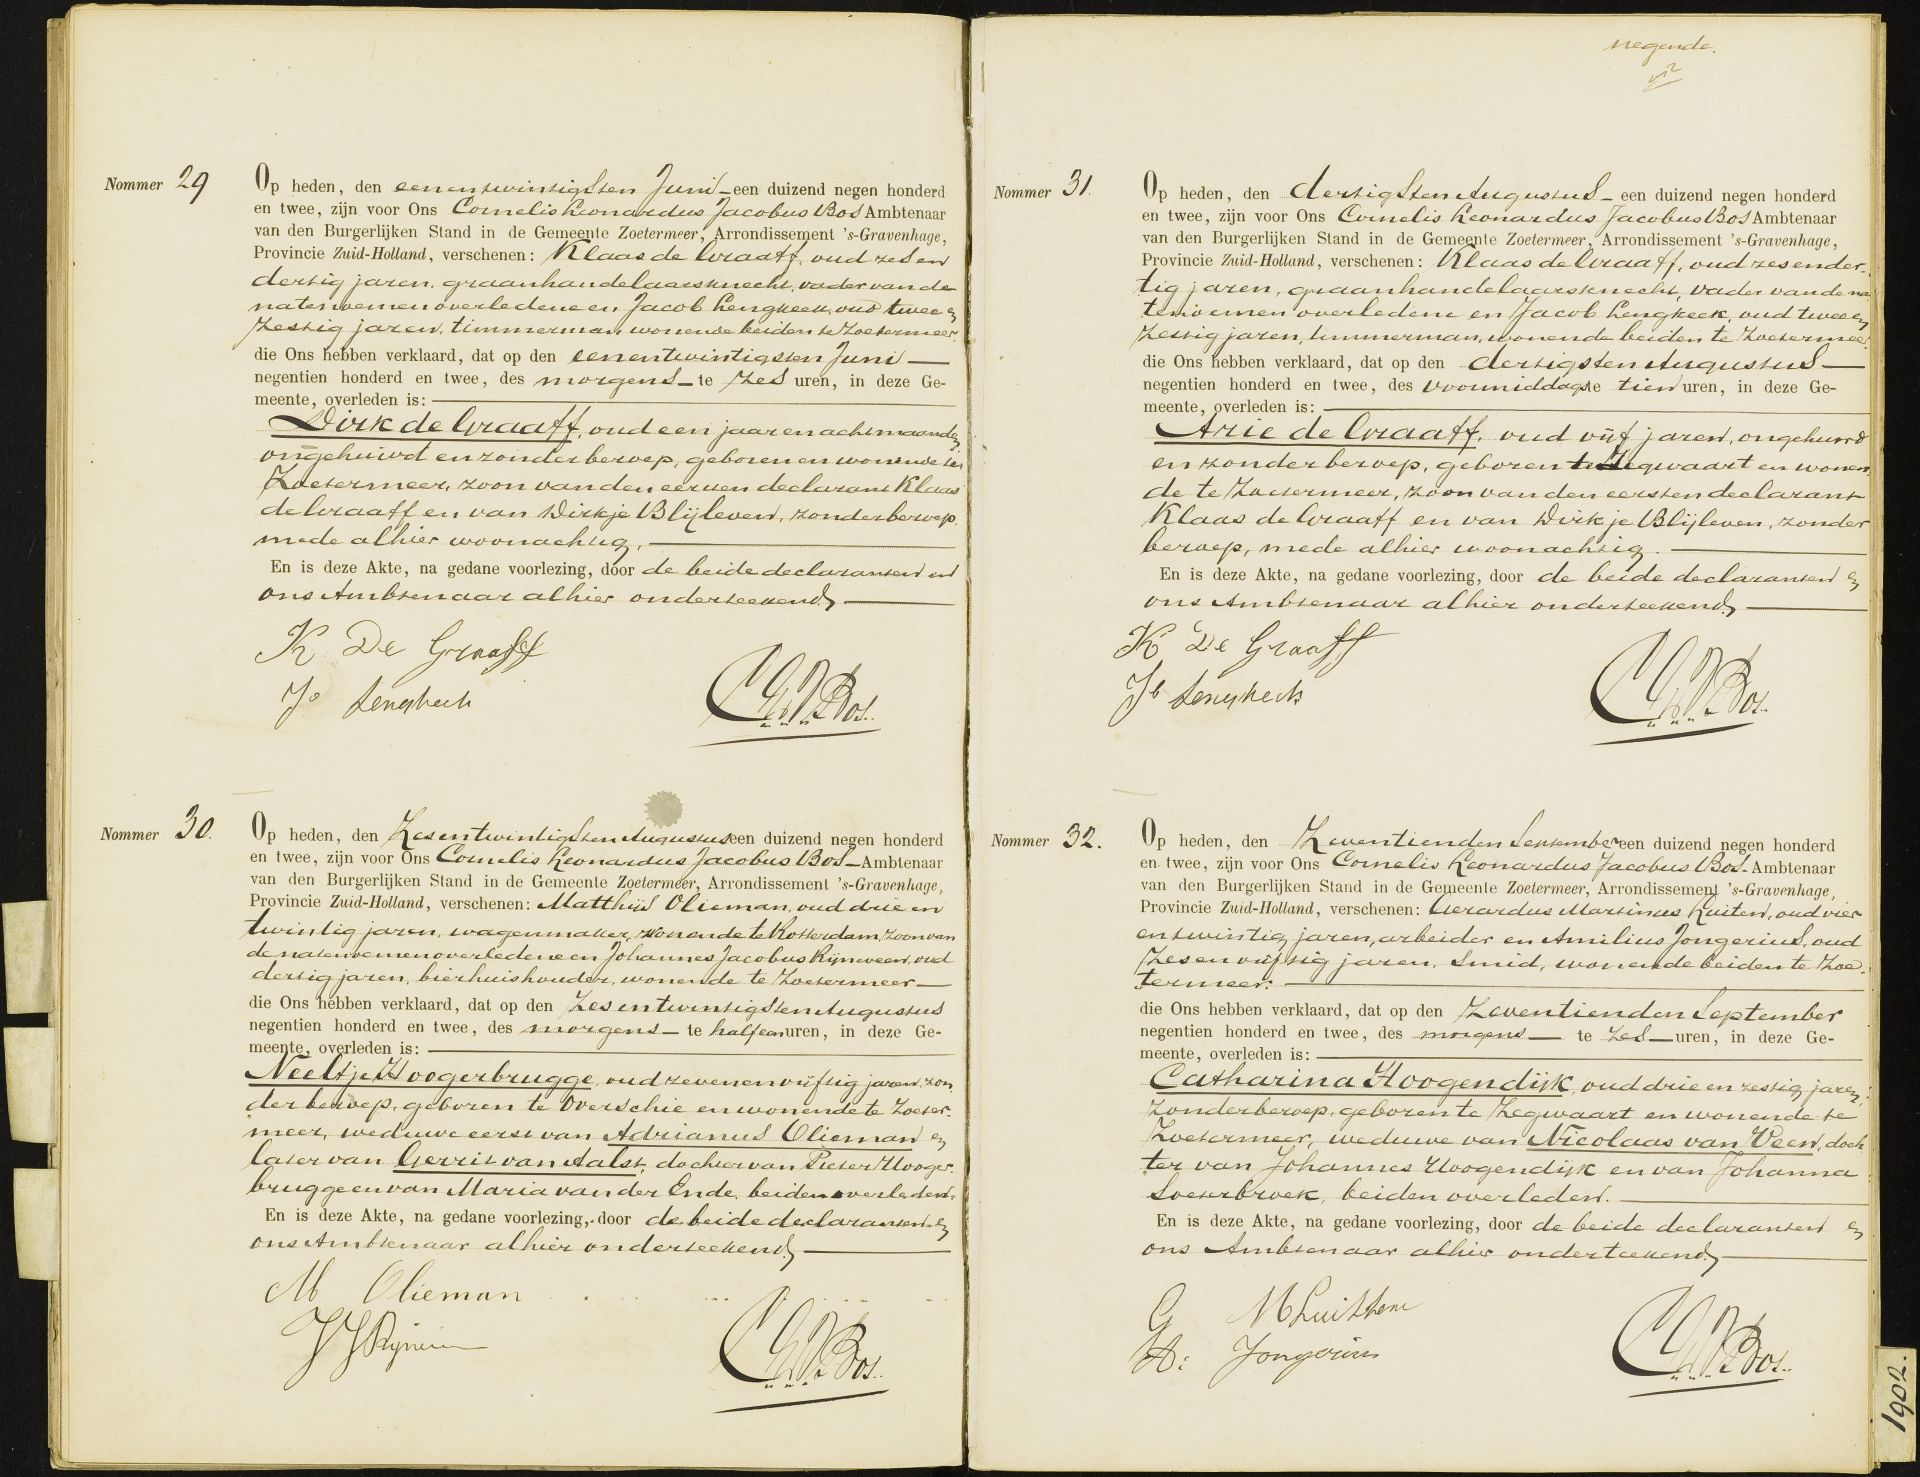 Nommer 29
Op heden, den eenentwintigsten Juni een duizend negen honderd
en twee, zijn voor Ons Cornelis Leonardus Jacobus Bos Ambtenaar
van den Burgerlijken Stand in de Gemeente Zoetermeer, Arrondissement 's-Gravenhage,
Provincie Zuid-Holland, verschenen: Klaas de Graaff, oud zes en
dertig jaren, graanhandelaarsknecht, vader van de
natenoemen overledene en Jacob Lengkeek, oud twee en
zestig jaren, timmerman, wonende beiden te Zoetermeer.
die Ons hebben verklaard, dat op den eenentwintigsten Juni
negentien honderd en twee, des morgens te zes uren, in deze Ge-
meente, overleden is:
Dirk de Graaff, oud een jaar en acht maanden,
ongehuwd en zonder beroep, geboren en wonende te
Zoetermeer, zoon van den eersten declarant Klaas
de Graaff en van Dirkje Blijleven, zonder beroep,
mede alhier woonachtig.
En is deze Akte, na gedane voorlezing, door de beide declaranten en
ons Ambtenaar alhier onderteekend
K De Graaff
Jb Lengkeek
CLJBos.
Nommer 30.
Op heden, den Zesentwintigsten Augustus een duizend negen honderd
en twee, zijn voor Ons Cornelis Leonardus Jacobus Bos Ambtenaar
van den Burgerlijken Stand in de Gemeente Zoetermeer, Arrondissement 's-Gravenhage,
Provincie Zuid-Holland, verschenen: Matthijs Olieman, oud drie en
twintig jaren, wagenmaker, wonende te Rotterdam, zoon van
de natenoemen overledene en Johannes Jacobus Rijneveen, oud
dertig jaren, bierhuishouder, wonende te Zoetermeer
die Ons hebben verklaard, dat op den Zesentwintigsten Augustus
negentien honderd en twee, des morgens te half een uren, in deze Ge-
meente, overleden is:
Neeltje Hoogerbrugge, oud zevenenvijftig jaren, zon
der beroep, geboren te Overschie en wonende te Zoeter-
meer, weduwe eerst van Adrianus Olieman en
later van Gerrit van Aalst, dochter van Pieter Hooger-
brugge en van Maria van der Ende, beiden overleden.
En is deze Akte, na gedane voorlezing, door de beide declaranten en
ons Ambtenaar alhier onderteekend
M Olieman
CLJBos.
negende.
Nommer 31.
Op heden, den dertigsten Augustus een duizend negen honderd
en twee, zijn voor Ons Cornelis Leonardus Jacobus Bos Ambtenaar
van den Burgerlijken Stand in de Gemeente Zoetermeer, Arrondissement 's-Gravenhage,
Provincie Zuid-Holland, verschenen: Klaas de Graaff, oud zesender-
tig jaren, graanhandelaarsknecht, vader van de na
tenoemen overledene en Jacob Lengkeek, oud twee en
zestig jaren, timmerman, wonende beiden te Zoetermeer.
die Ons hebben verklaard, dat op den dertigsten Augustus
negentien honderd en twee, des voormiddags te tien uren, in deze Ge-
meente, overleden is:
Arie de Graaff, oud vijf jaren, ongehuwd
en zonder beroep, geboren te Zegwaart en wonen
de te Zoetermeer, zoon van den eersten declarant
Klaas de Graaff en van Dirkje Blijleven, zonder
beroep, mede alhier woonachtig.
En is deze Akte, na gedane voorlezing, door de beide declaranten en
ons Ambtenaar alhier onderteekend
K De Graaff
Jb Lengkeek
CLJBos.
Nommer 32.
Op heden, den Zeventienden September een duizend negen honderd
en twee, zijn voor Ons Cornelis Leonardus Jacobus Bos Ambtenaar
van den Burgerlijken Stand in de Gemeente Zoetermeer, Arrondissement 's-Gravenhage,
Provincie Zuid-Holland, verschenen: Gerardus Martinus Luiten, oud vier
en twintig jaren, arbeider en Amilius Jongerius, oud
zesenvijftig jaren, smid, wonende beiden te Zoe-
termeer:
die Ons hebben verklaard, dat op den Zeventienden September
negentien honderd en twee, des morgens te zes uren, in deze Ge-
meente, overleden is:
Catharina Hoogendijk, oud drie en zestig jaren,
zonder beroep, geboren te Zegwaart en wonende te
Zoetermeer, weduwe van Nicolaas van Veen, doch
ter van Johannes Hoogendijk en van Johanna
Soeterbroek, beiden overleden.
En is deze Akte, na gedane voorlezing, door de beide declaranten en
ons Ambtenaar alhier onderteekend
G M Luithen
A: Jongerius
CLJBos.
1902.